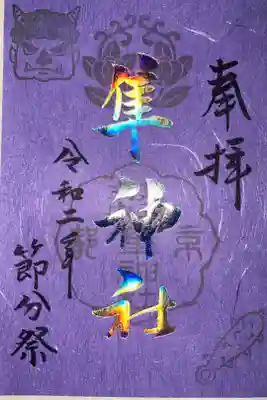 奉拝
隼神社
令和二年
節分祭